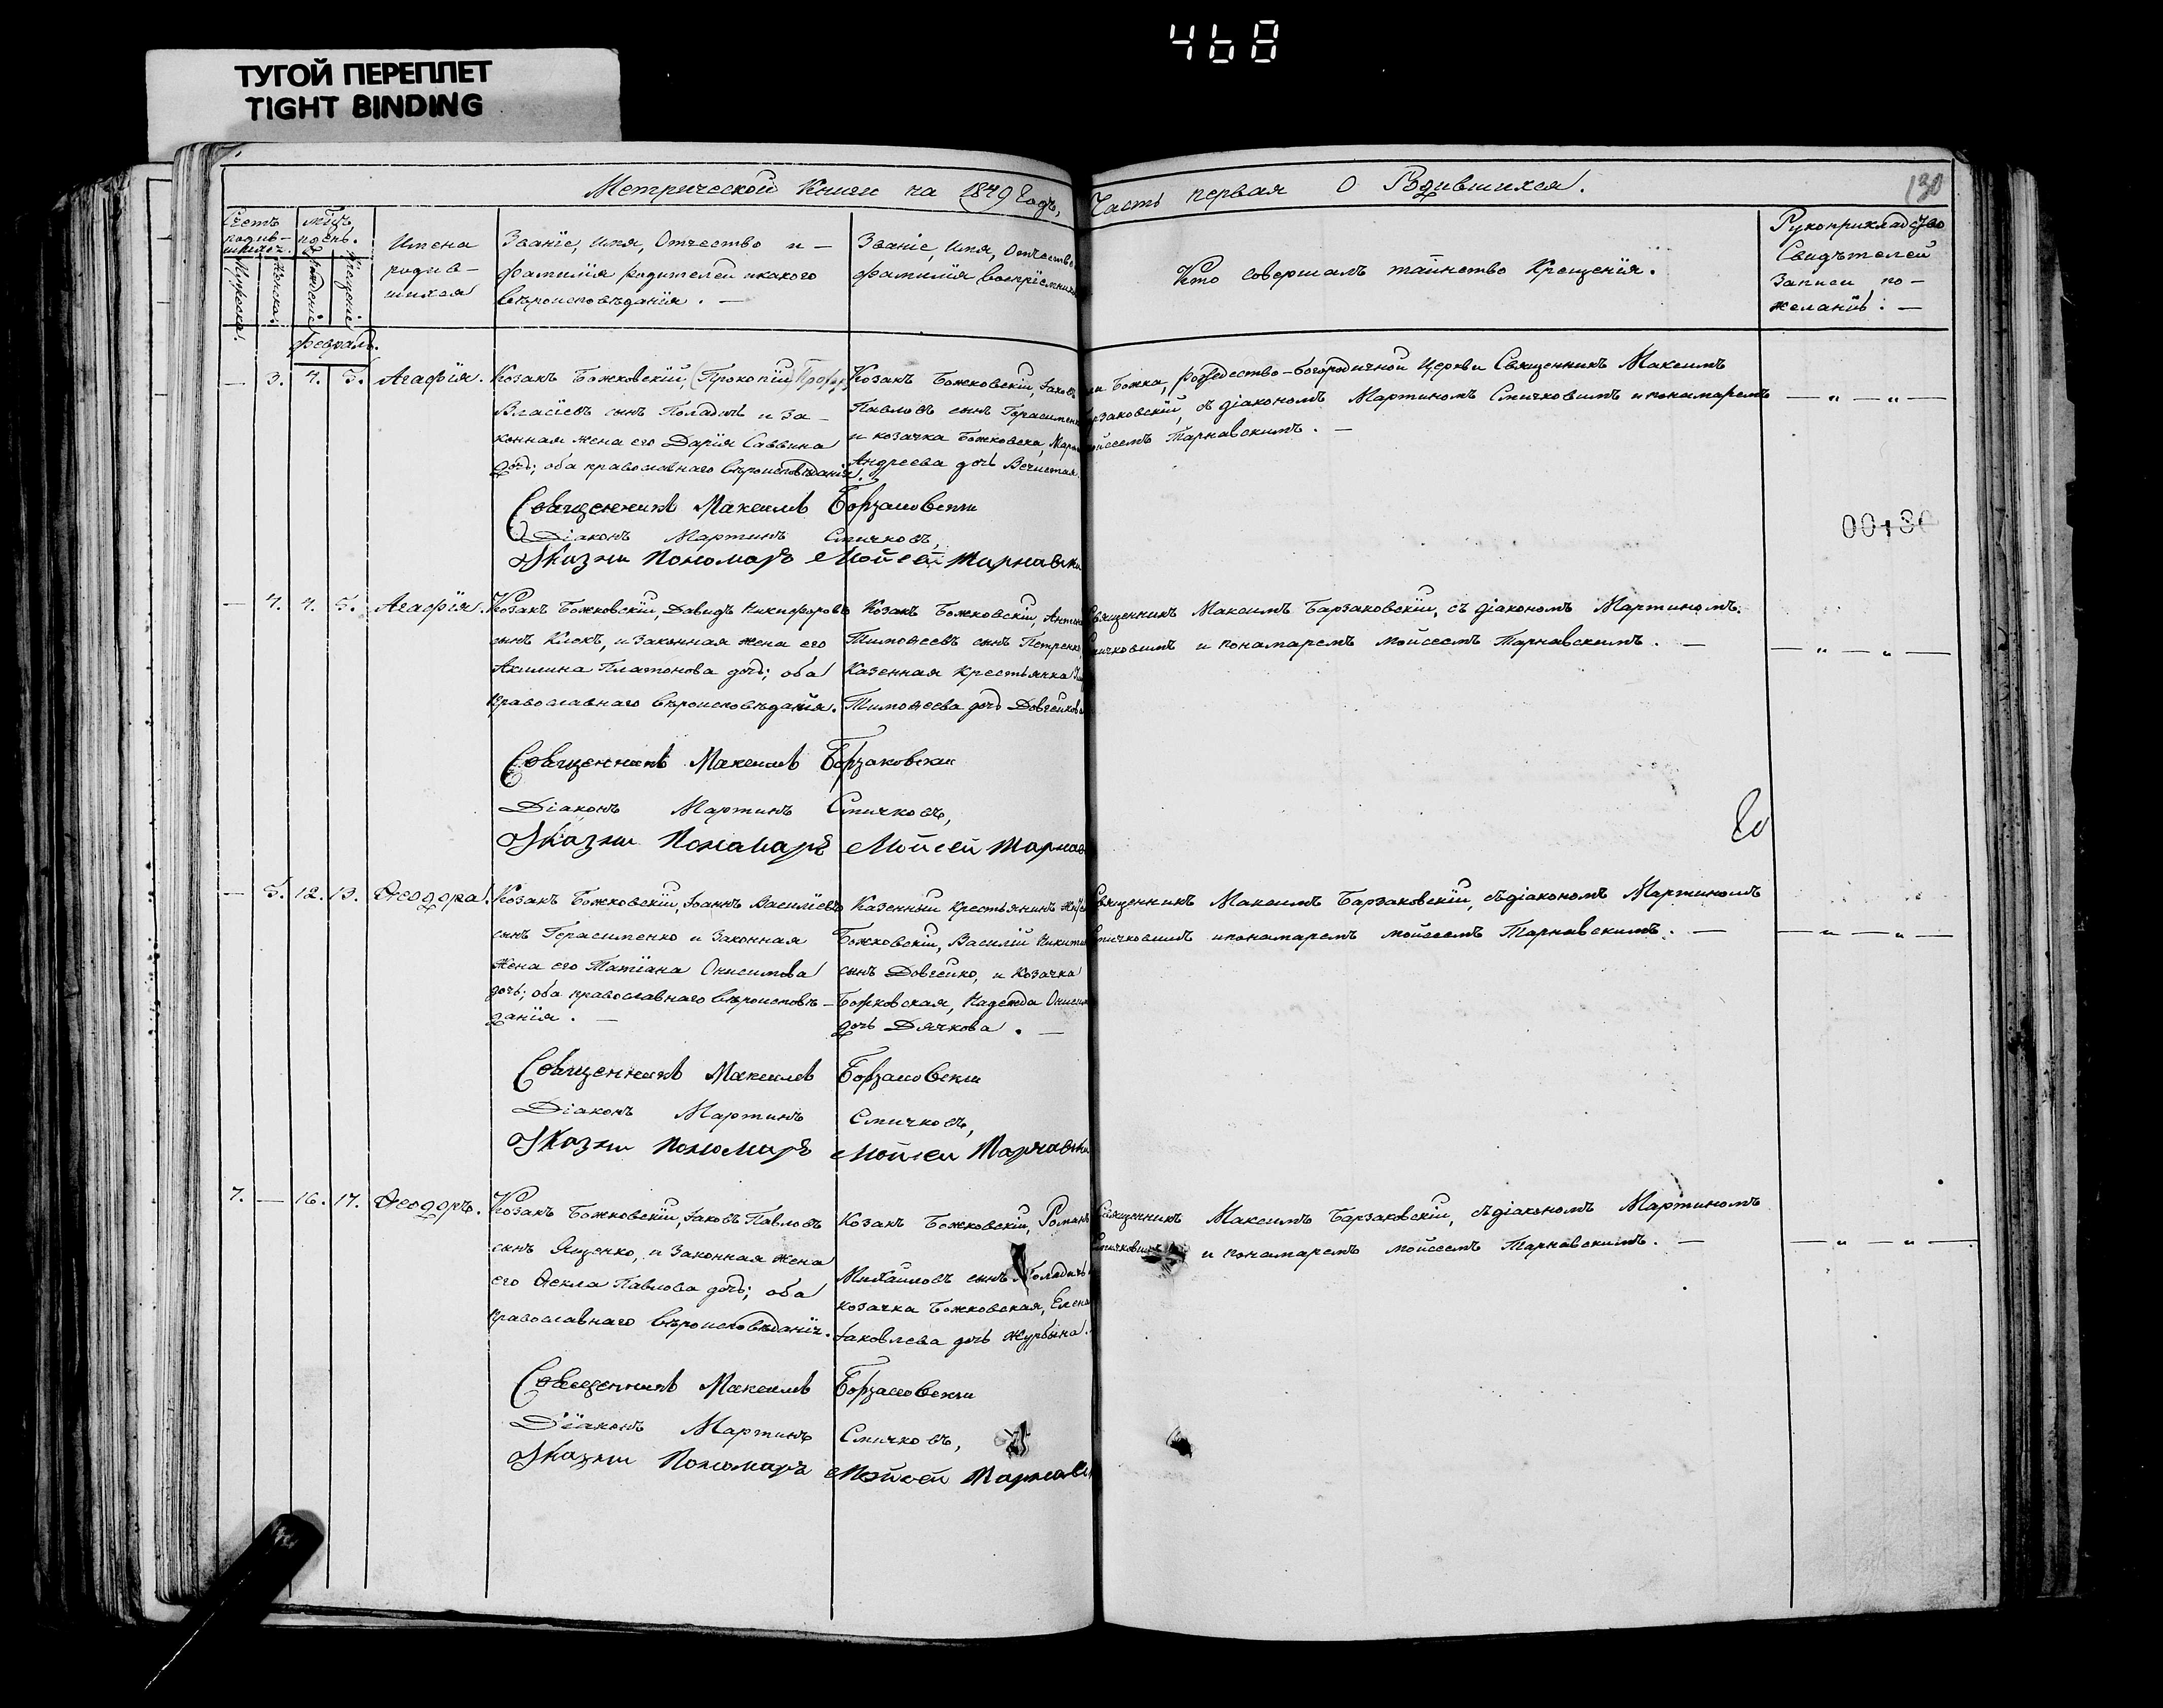 468
ТУГОЙ ПЕРЕПЛЕТ
TIGHT BINDING
Метрической Книги на 1849 Годъ, Часть первая О Родившихся.
130
Счетъ родив-шихся.
Мужеска.
Женска.
мѣць и день.
Рожденіе
Крещеніе
Имена
родив-
шихся
Званіе, имя, Отчество и -
фамилія родителей и какого
вѣроисповѣданія. —
Званіе, имя, Отчество
фамилія воспріемник
Кто совершалъ таинство Крещенія.
Рукоприкладство
Свидѣтелей
Записи по -
желанію: —
февраль.
— 3. 4. 5. Агафія.
Козакъ Божковскій, (Прокопій)
Власіевъ сынъ Поладичъ и за-
конная жена его Дарія Саввина
дочь; оба православнаго вѣроисповѣданія.
Козакъ Божковскій, Іаковъ
Павловъ сынъ Герасименк
и козачка Божковска, Мар
Андреева дочь
Божка, Рождество-богородичной Церкви Священникъ Максимъ
рзаковскій, съ діакономъ Мартиномъ Смичковимъ и понамаремъ
ойсеемъ Тарнавскимъ. —
— „ — „ —
Священникъ Максимъ Борзаковскій
Діаконъ Мартинъ Смичковъ,
Пономаръ Мойсей Тарнавски
— 4. 4. 5. Агафія.
Козакъ Божковскій, Давидъ Никифоровъ
сынъ Клекъ, и законная жена его
Акилина Платонова дочь; оба
православнаго вѣроисповѣданія.
Козакъ Божковскій, Антон
Тимофеевъ сынъ Петренко,
Казенная крестьянка
Тимофеева дочь Довгейкова
Священникъ Максимъ Барзаковскій, съ діакономъ Мартиномъ
Смичковимъ и понамаремъ мойсеемъ Тарнавскимъ. —
— „ — „ —
Священникъ Максимъ Борзаковскій
Діаконъ Мартинъ Смичковъ,
Понамаръ Мойсей Тарнав
— 5. 12. 13. Ѳеодора.
Козакъ Божковскій, Іоаннъ Василіевъ
сынъ Герасименко и законная
жена его Татіана Онисимова
дочь; оба православнаго вѣроисповѣ-
данія. —
Казенный крестьянинъ
Божковскій, Василій Никитин
сынъ Довгейко, и козачка
Божковская, Надежда Онисим
дочь Дячкова. —
Священникъ Максимъ Барзаковскій, съ діакономъ Мартиномъ
Смичковимъ и понамаремъ мойсеемъ Тарнавскимъ. —
— „ — „ —
Священникъ Максимъ Борзаковскій
Діаконъ Мартинъ Смичковъ,
Пономаръ Мойсей Тарнавски
7. — 16. 17. Ѳеодоръ.
Козакъ Божковскій, Іаковъ Павловъ
сынъ Ященко, и законная жена
его Ѳекла Павлова дочь; оба
православнаго вѣроисповѣданія.
Козакъ Божковскій, Романъ
Михайловъ сынъ Поладичъ
козачка Божковская, Елена
Іаковлева дочь Журбына.
Священникъ Максимъ Барзаковскій, съ діакономъ Мартиномъ
Смичковимъ и понамаремъ мойсеемъ Тарнавскимъ. —
— „ — „ —
Священникъ Максимъ Борзаковскій
Діаконъ Мартинъ Смичковъ,
Пономаръ Мойсей Тарнавс